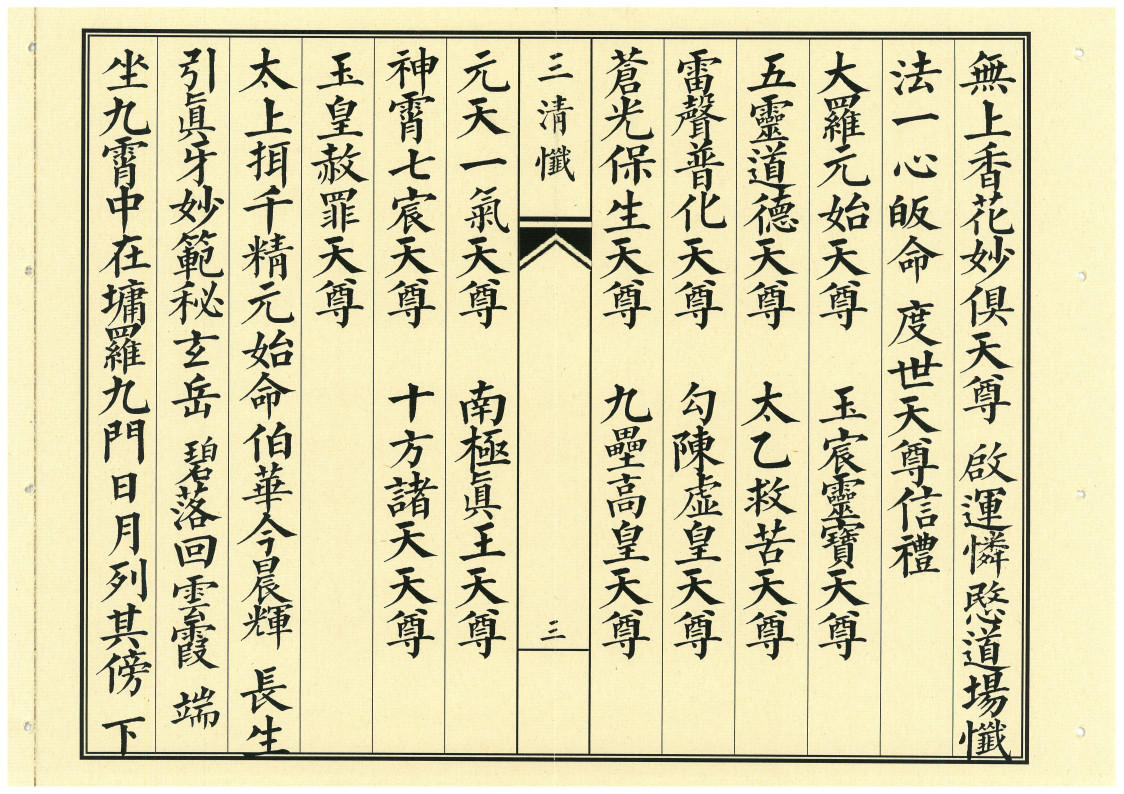 無上香花妙俱天尊 啟運憐愍道場懺
法一心皈命 度世天尊信禮
大羅元始天尊 玉宸靈寶天尊
五靈道德天尊 太乙救苦天尊
雷聲普化天尊 勾陳虛皇天尊
蒼光保生天尊 九壘高皇天尊
三清懺 三
元天一氣天尊 南極眞王天尊
神霄七宸天尊 十方諸天天尊
玉皇赦罪天尊
太上揖千精元始命伯華今晨輝 長生
引眞牙妙範秘玄岳 碧落回雲霞 端
坐九霄中在墉羅九門日月列其傍 下